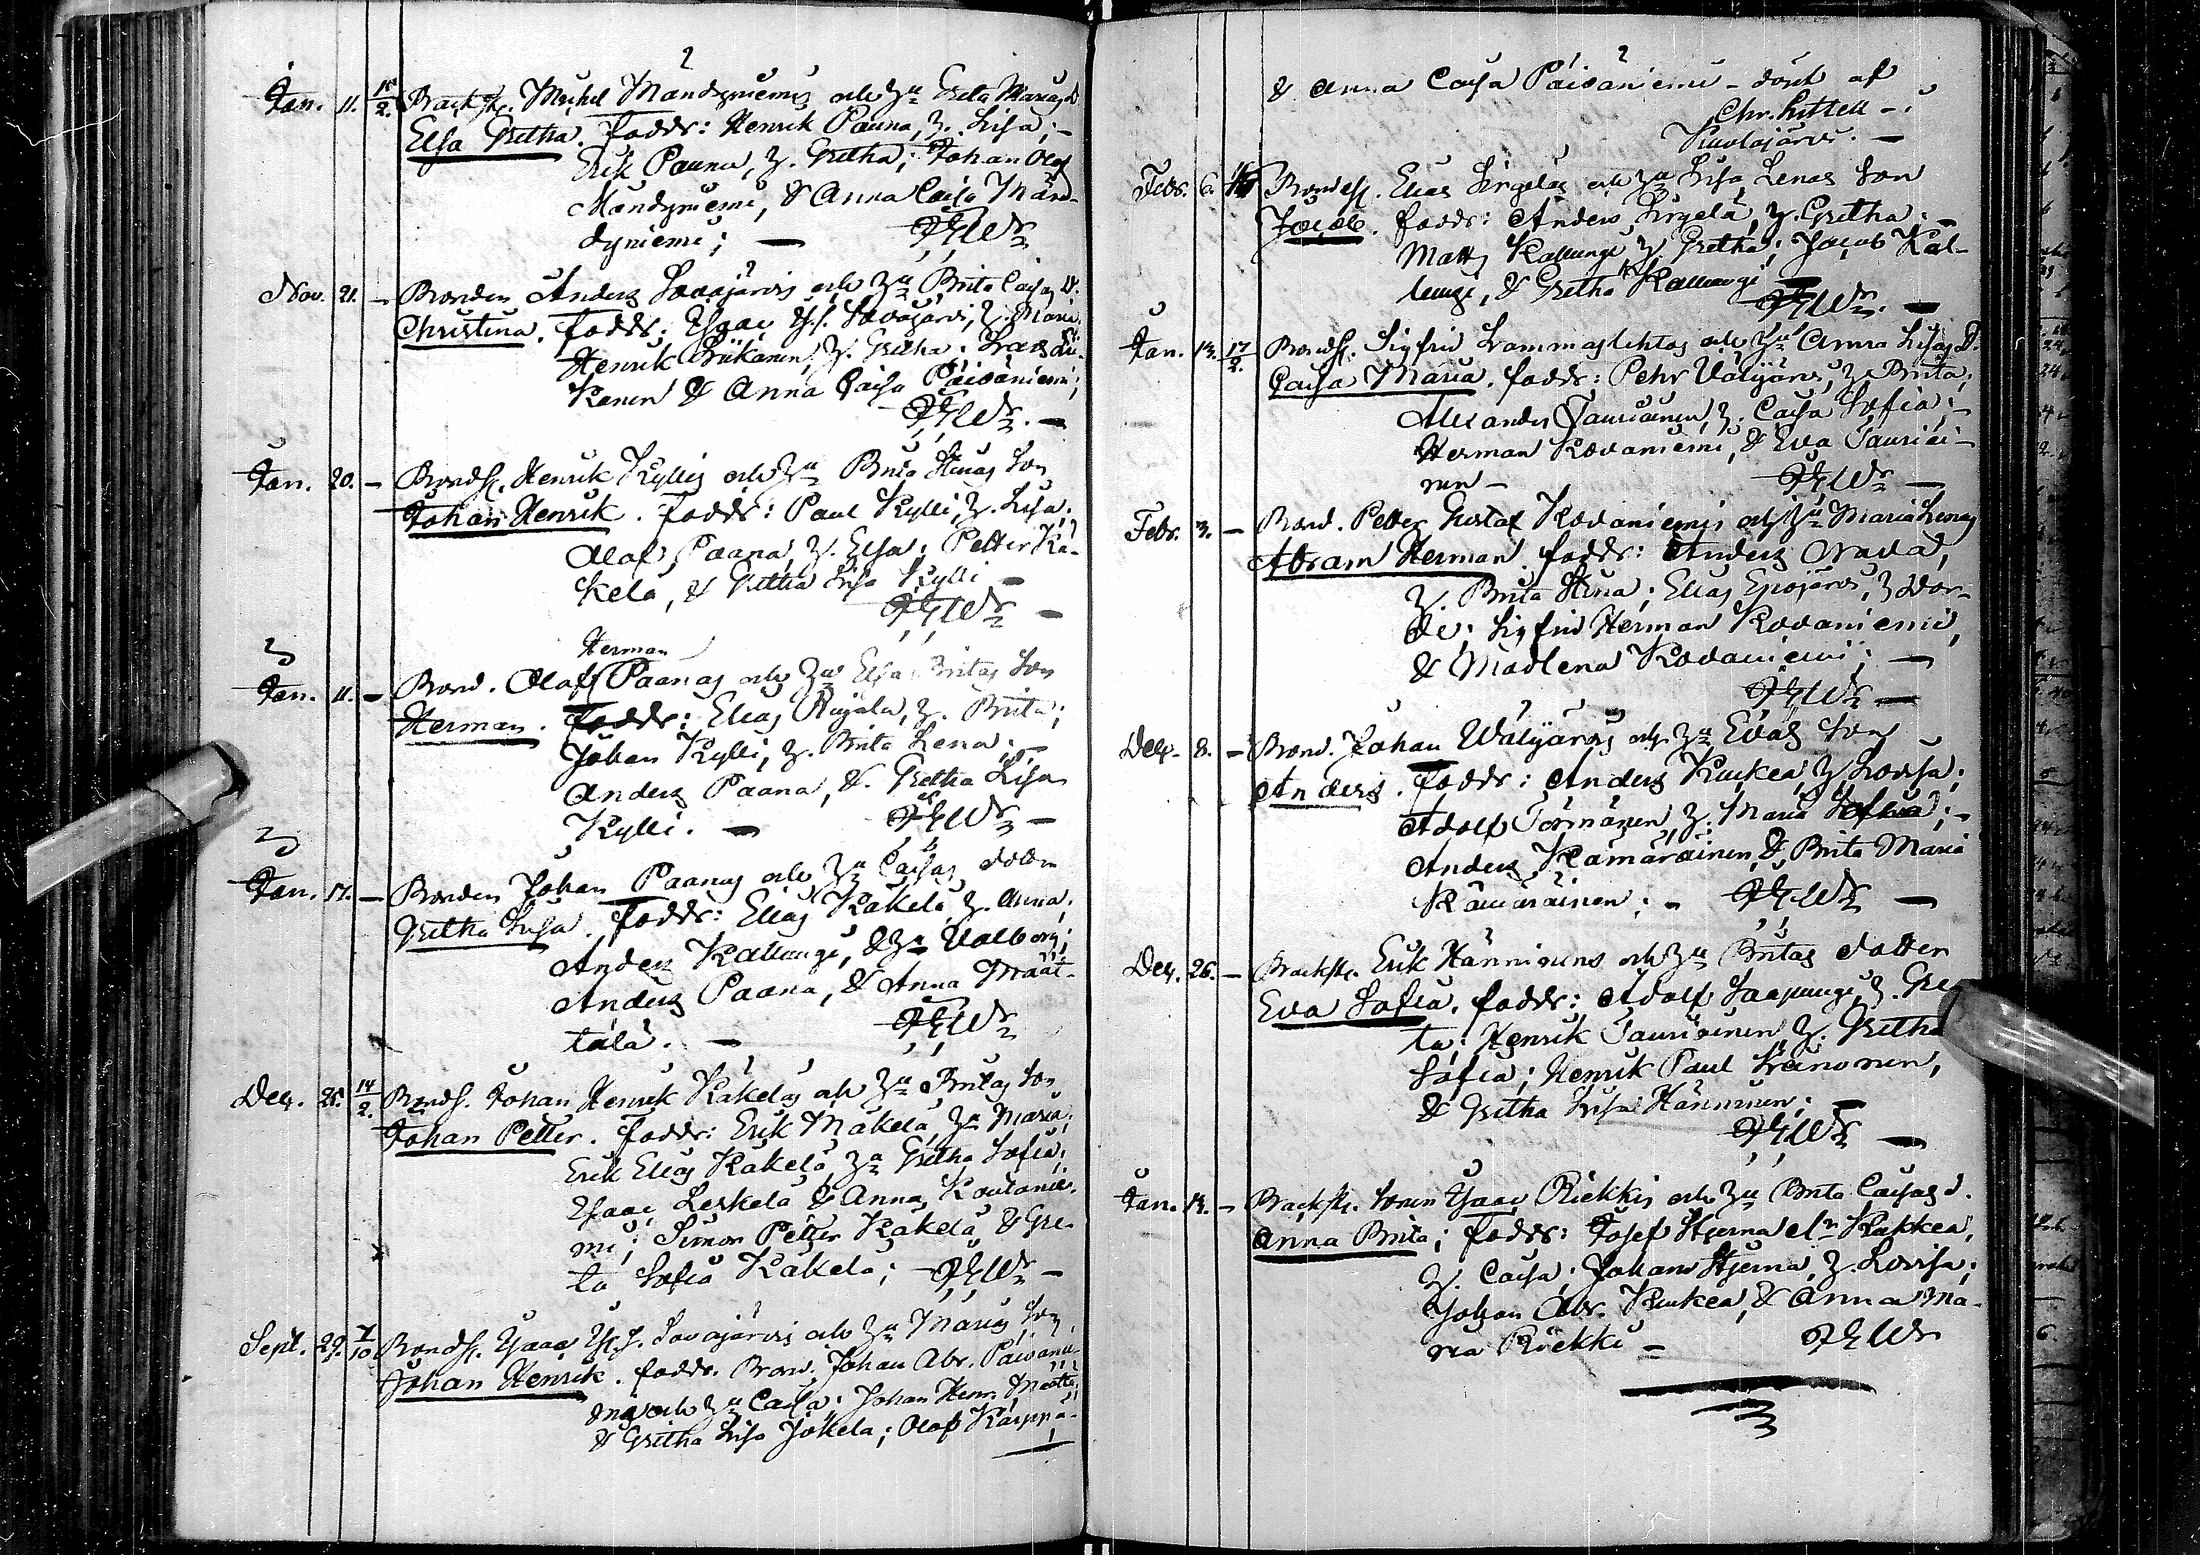 Jan. 11. 10/2. Brackst. Michel Mändyniemis och H:u Greta Marias D.
Elsa Gretha. fadds: Henrik Paana, H. Lisa; -
Erik Paana, H. Gretha; Johan Olof
Mändyniemi, & Anna Caisa Män-
dyniemi; —
Nov. 21. - Bonden Anders Savojärvis och H:u Brita Caisas D.
Christina. fadds: Esaac Es.s. Savojärvi, H. Maria,
Henrik
Kanen & Anna Caisa Päiväniemi;
Jan. 20. - Bonds. Henrik Kyllis och H:u Brita Stinas Son
Johan Henrik. fadds: Paul Kylli, H. Lisa;
Olof Paana, H. Elsa; Petter Kä-
kelä, & Gretha Lisa Kylli -
Herman
Jan. 11. - Bond. Olof Paanas och H:u Elsa Britas Son
Herman. fadds: Elias Aiyälä, H. Brita;
Johan Kylli, H. Brita Lena; -
Anders Paana, & Gretha Lisa
Kylli. —
Jan. 17. - Bonden Johan Paanas och H:u Caisas dotter
Gretha Lisa. fadds: Elias Käkelä H. Anna;
Anders Kallunge, & H:u Valborg;
Anders Paana, & Anna Määt-
tälä. —
Dec. 25. 14/2. Bonds. Johan Henrik Käkeläs och H:u Britas Son
Johan Petter. fadds: Erik Mäkelä, H:u Maria;
Erik Elias Käkelä, H:u Gretha Sofia;
Esaac Leskelä & Anna Koutanie-
mi; Simon Petter Käkelä, & Gre-
ta Sofia Käkelä;
Sept. 29. 7/10. Bonds. Esaac Es.s. Savojärvis och H:u Marias Son
Johan Henrik. fadds. Bond. Johan Abr. Päiväni-
och H:u Caisa; Johan Henr. Määttä
& Gretha Lisa Jokela; Olof Karppa-
& Anna Caisa Päiväniemi - döpt af
Chr. Littell -
Kuolajärvi. —
Febr. 6. Bondes. Elias Sirgeläs och H:u Lisa Lenas Son
Jacob. fadds: Anders Sirgelä, H. Gretha; -
Matts Kallunge H. Gretha; Jacob Kal-
lunge, & Gretha Kallunge
Jan. 13. 17/2. Bonds. Sigfrid Lammaslehtos och H:u Anna Lisas D.
Caisa Maria. fadds: Pehr Välijärvi, H. Brita;
Alexander Tauriainen, H. Caisa Sofia; -
Herman Kovaniemi, & Eva Tauriai-
nen -
Febr. 3. - Bond. Petter Gustaf Kovaniemis och H:u Maria Lenas
Abram Herman. fadds: Anders Orava,
H. Brita Stina; Elias Ejnojärvi, H. Wor-
de; Sigfrid Herman Kovaniemi,
& Madlena Kovaniemi; —
Dec. 8. - Bond. Johan Wälijärvis och H:u Evas Son
Anders. fadds: Anders Kurkea, H. Lovisa;
Adolf Törmänen, H. Maria Sofia; -
Anders Kämäräinen, & Brita Maria
Kämäräinen; -
Dec. 26. - Brackst. Erik Hänninens och H:u Britas dotter
Eva Sofia. fadds: Adolf Saapunge, H. Gre
ta; Henrik Tauriainen, H. Gretha
Sofia; Henrik Paul Keinonen,
& Gretha Lisa Hänninen; —
Jan. 13. - Brackst. Sonen Esaac Riekkis och H:u Brita Caisas d.
Anna Brita; fadds: Josef Stjerna el:r Kukkea,
H. Caisa; Johan Stjerna, H. Lovisa;
Johan Abr. Kurkea, & Anna Ma-
ria Riekki -